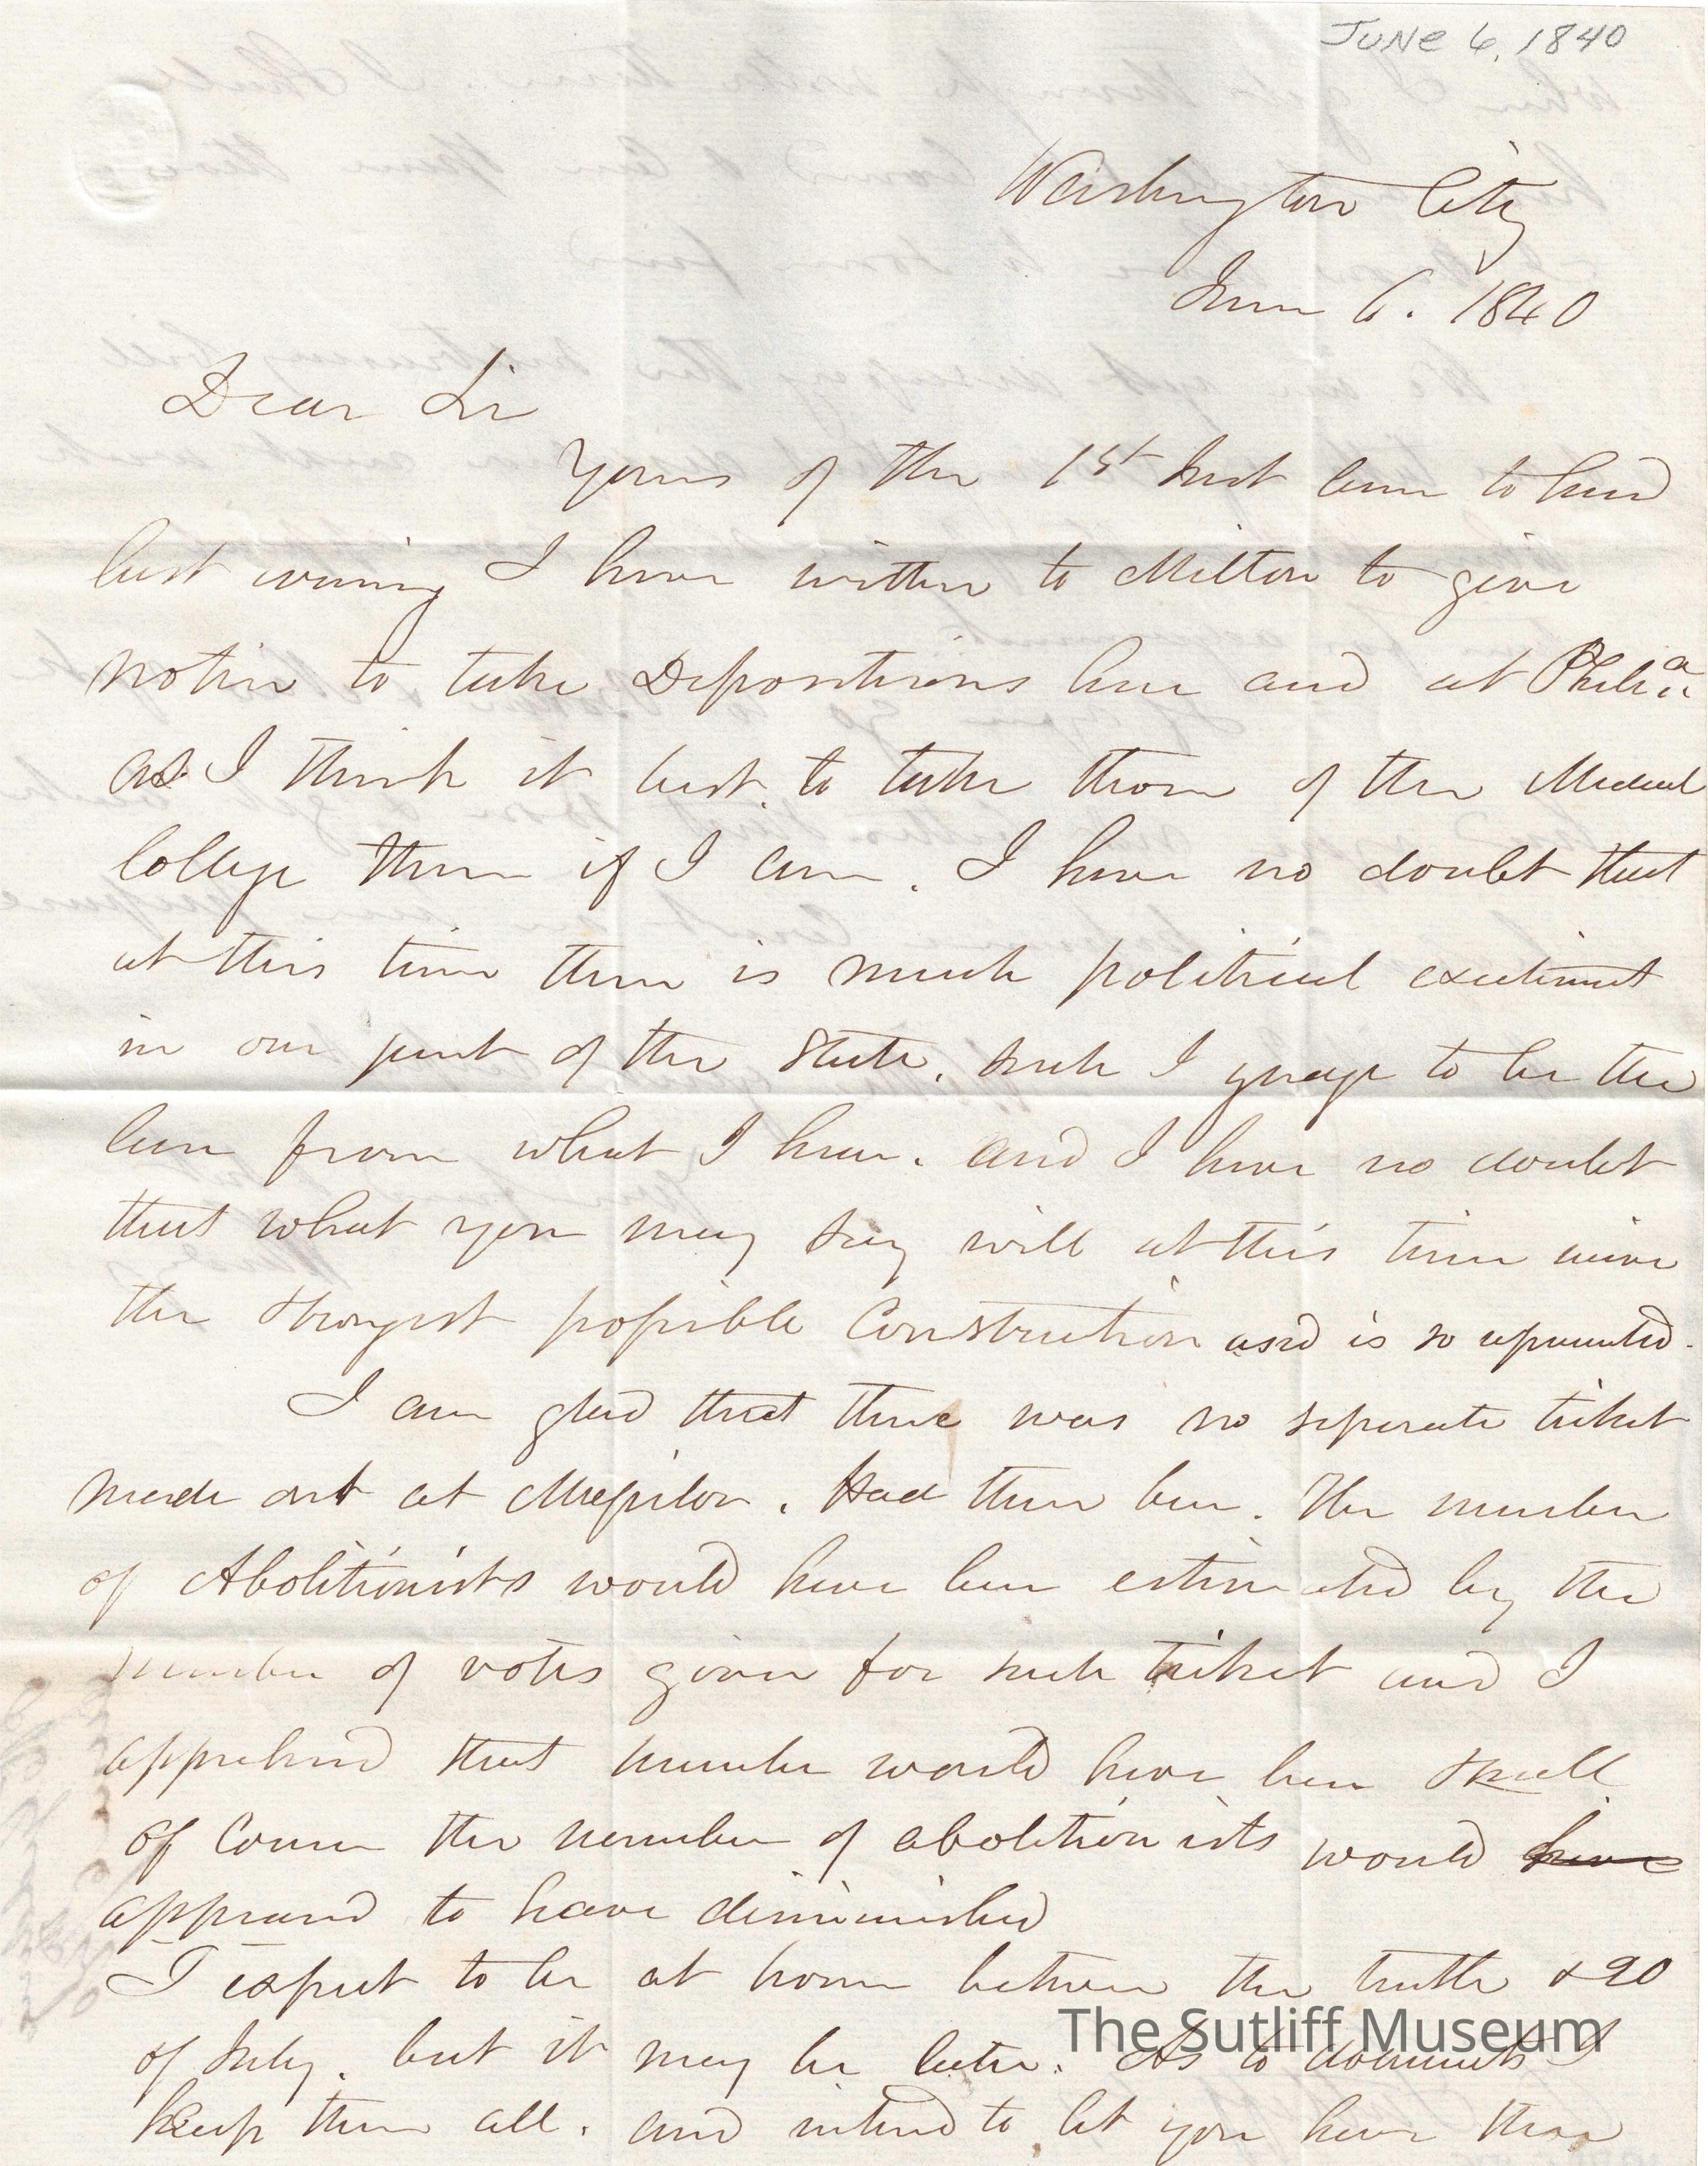 JUNE 6, 1840
Washington City
June 6. 1840
Dear Sir
Yours of the 1st Inst came to hand
last evening I have written to Milton to give
notice to take Depositions here and at Phila
as I think it best to take those of the Medical
College there if I can. I have no doubt that
at this time there is much political excitement
in our part of the State. such I to be the
case from what I hear. and I have no doubt
that what you may say will at this time
the strongest possible Construction and is so represented.
I am glad that there was no seperate ticket
made out at . Had there been. The number
of Abolitionists would have been estimated by the
number of votes given for such ticket and I
apprehend that number would have been small
of Course the number of abolitionists would have
appeared to have diminished
I expect to be at home between the tenth & 20
of July. but it may be later. As to documents I
keep them all. and intend to let you have them
The Sutliff Museum